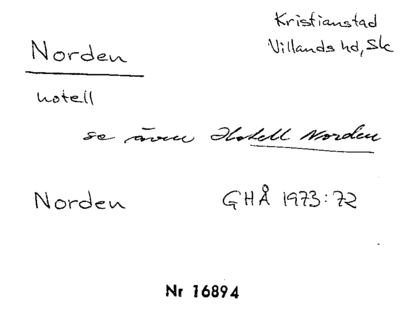 Kristianstad
Villands hd, Sk
Norden
hotell
se även Hotell Norden
Norden GHÅ 1973:72
Nr 16894